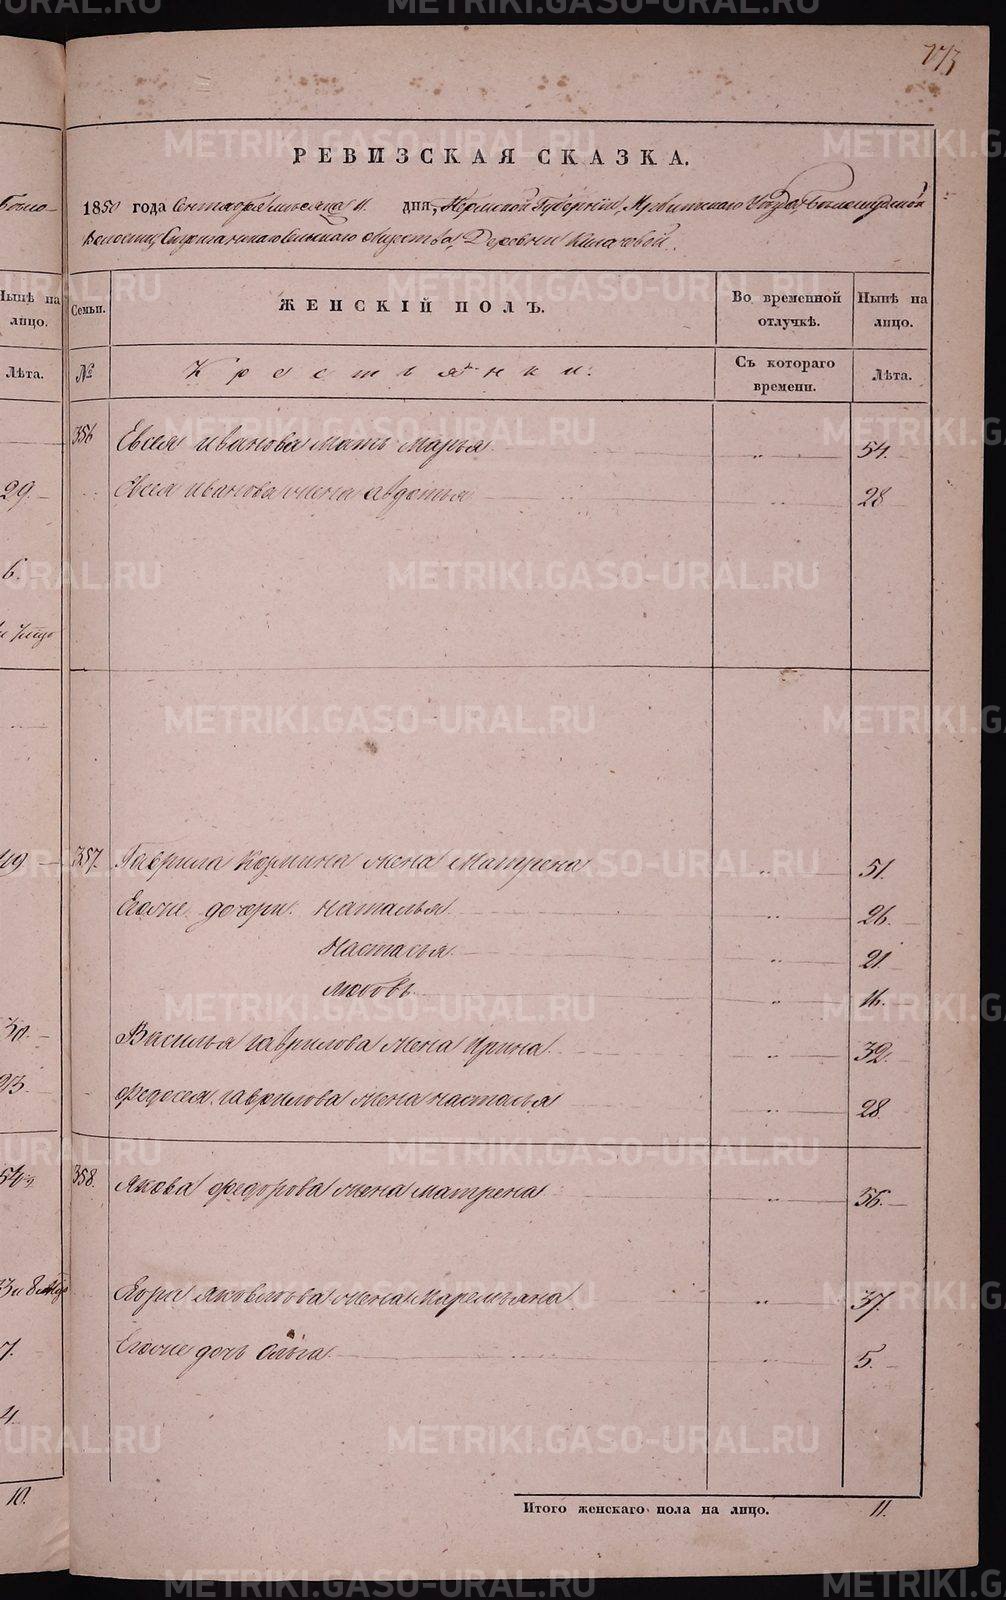 173
РЕВИЗСКАЯ СКАЗКА.
1850 года Сентября месяца 11 дня, Пермской Губернии, Ирбитского Уезда,
Волости, Сельского Общества, Деревни
Семьи. ЖЕНСКІЙ ПОЛЪ. Во временной отлучкѣ. Нынѣ на лицо.
№ Крестьянки. Съ котораго времени. Лѣта.
356 Евсея Иванова мать Марья 54.
Евсея Иванова жена Авдотья 28
357. Гаврила Козмина жена Матрена 51.
Его же дочери: Наталья 26.
Настасья 21
Любовь 16.
Василья Гаврилова жена Ирина 32.
Федосея Гаврилова жена Настасья 28.
358. Якова Федорова жена Матрена 55.
Яковлева жена 37.
Его же дочь Ольга 5.
Итого женскаго пола на лицо. 11.
Нынѣ на лицо.
Лѣта.
29.
6.
49
30.
23.
7.
4
10.
METRIKI.GASO-URAL.RU